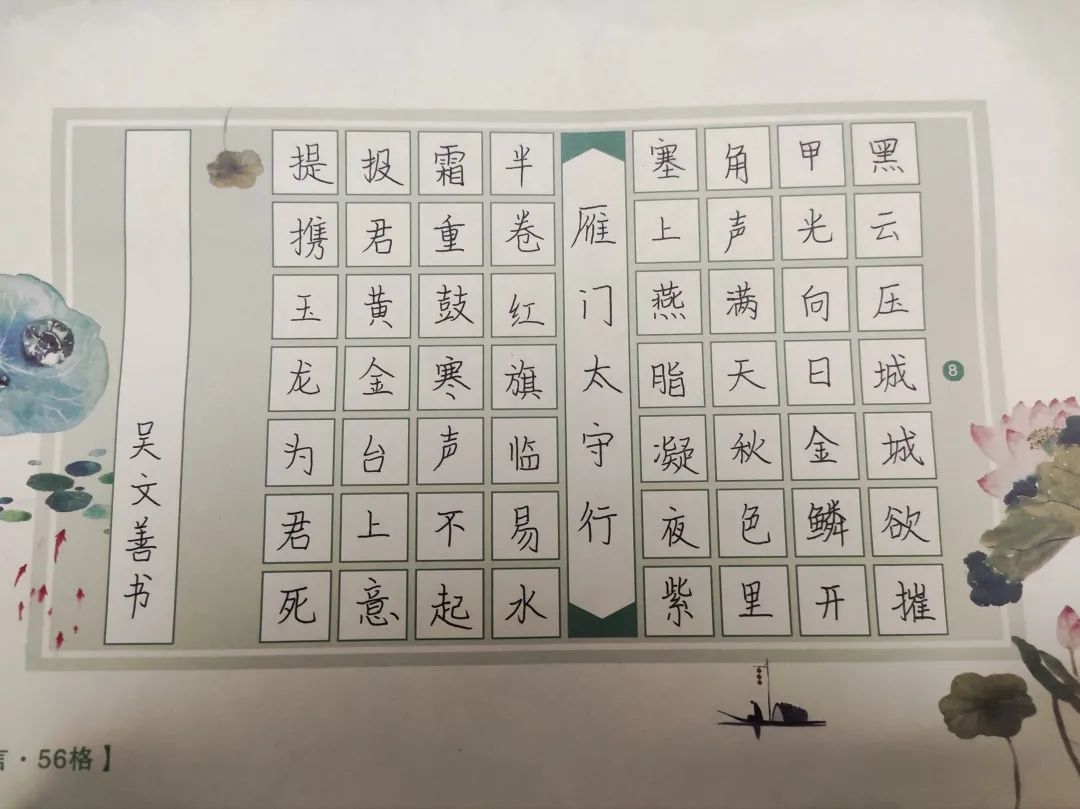 黑云压城城欲摧
甲光向日金鳞开
角声满天秋色里
塞上燕脂凝夜紫
雁门太守行
半卷红旗临易水
霜重鼓寒声不起
报君黄金台上意
提携玉龙为君死
吴文善书
8
言·56格】